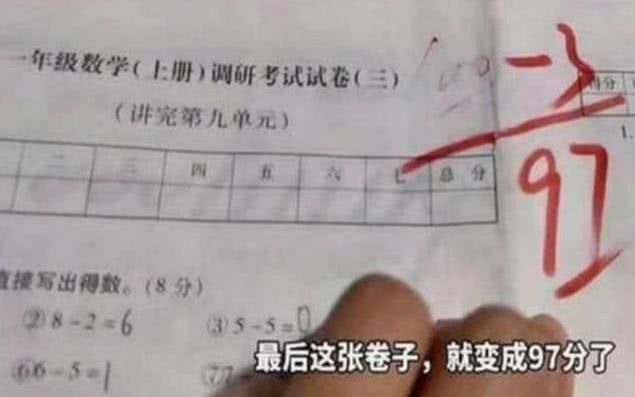 一年级数学(上册)调研考试试卷(三)
(讲完第九单元)
-3
97
得分
1.
二 三 四 五 六 七 总 分
直接写出得数。(8分)
②8-2=6 ③5-5=0
⑥6-5=1 ⑦7-
最后这张卷子，就变成97分了